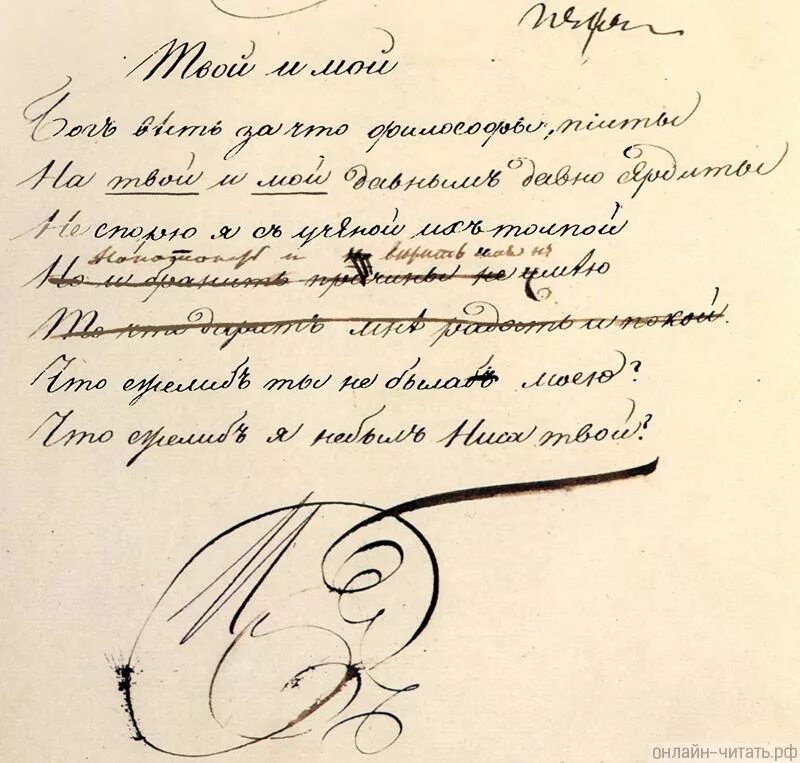 Твой и мой
Богъ вѣсть за что философы, піиты
На твой и мой давнымъ давно сѣрдиты
Не спорю я съ учёной ихъ толпой
и вѣрить имъ не
Но и бранить причины не имѣю
То что даритъ мнѣ радость и покой.
Что ежелибъ ты не была моею?
Что ежелибъ я небылъ Ниса твой?
онлайн-читать.рф